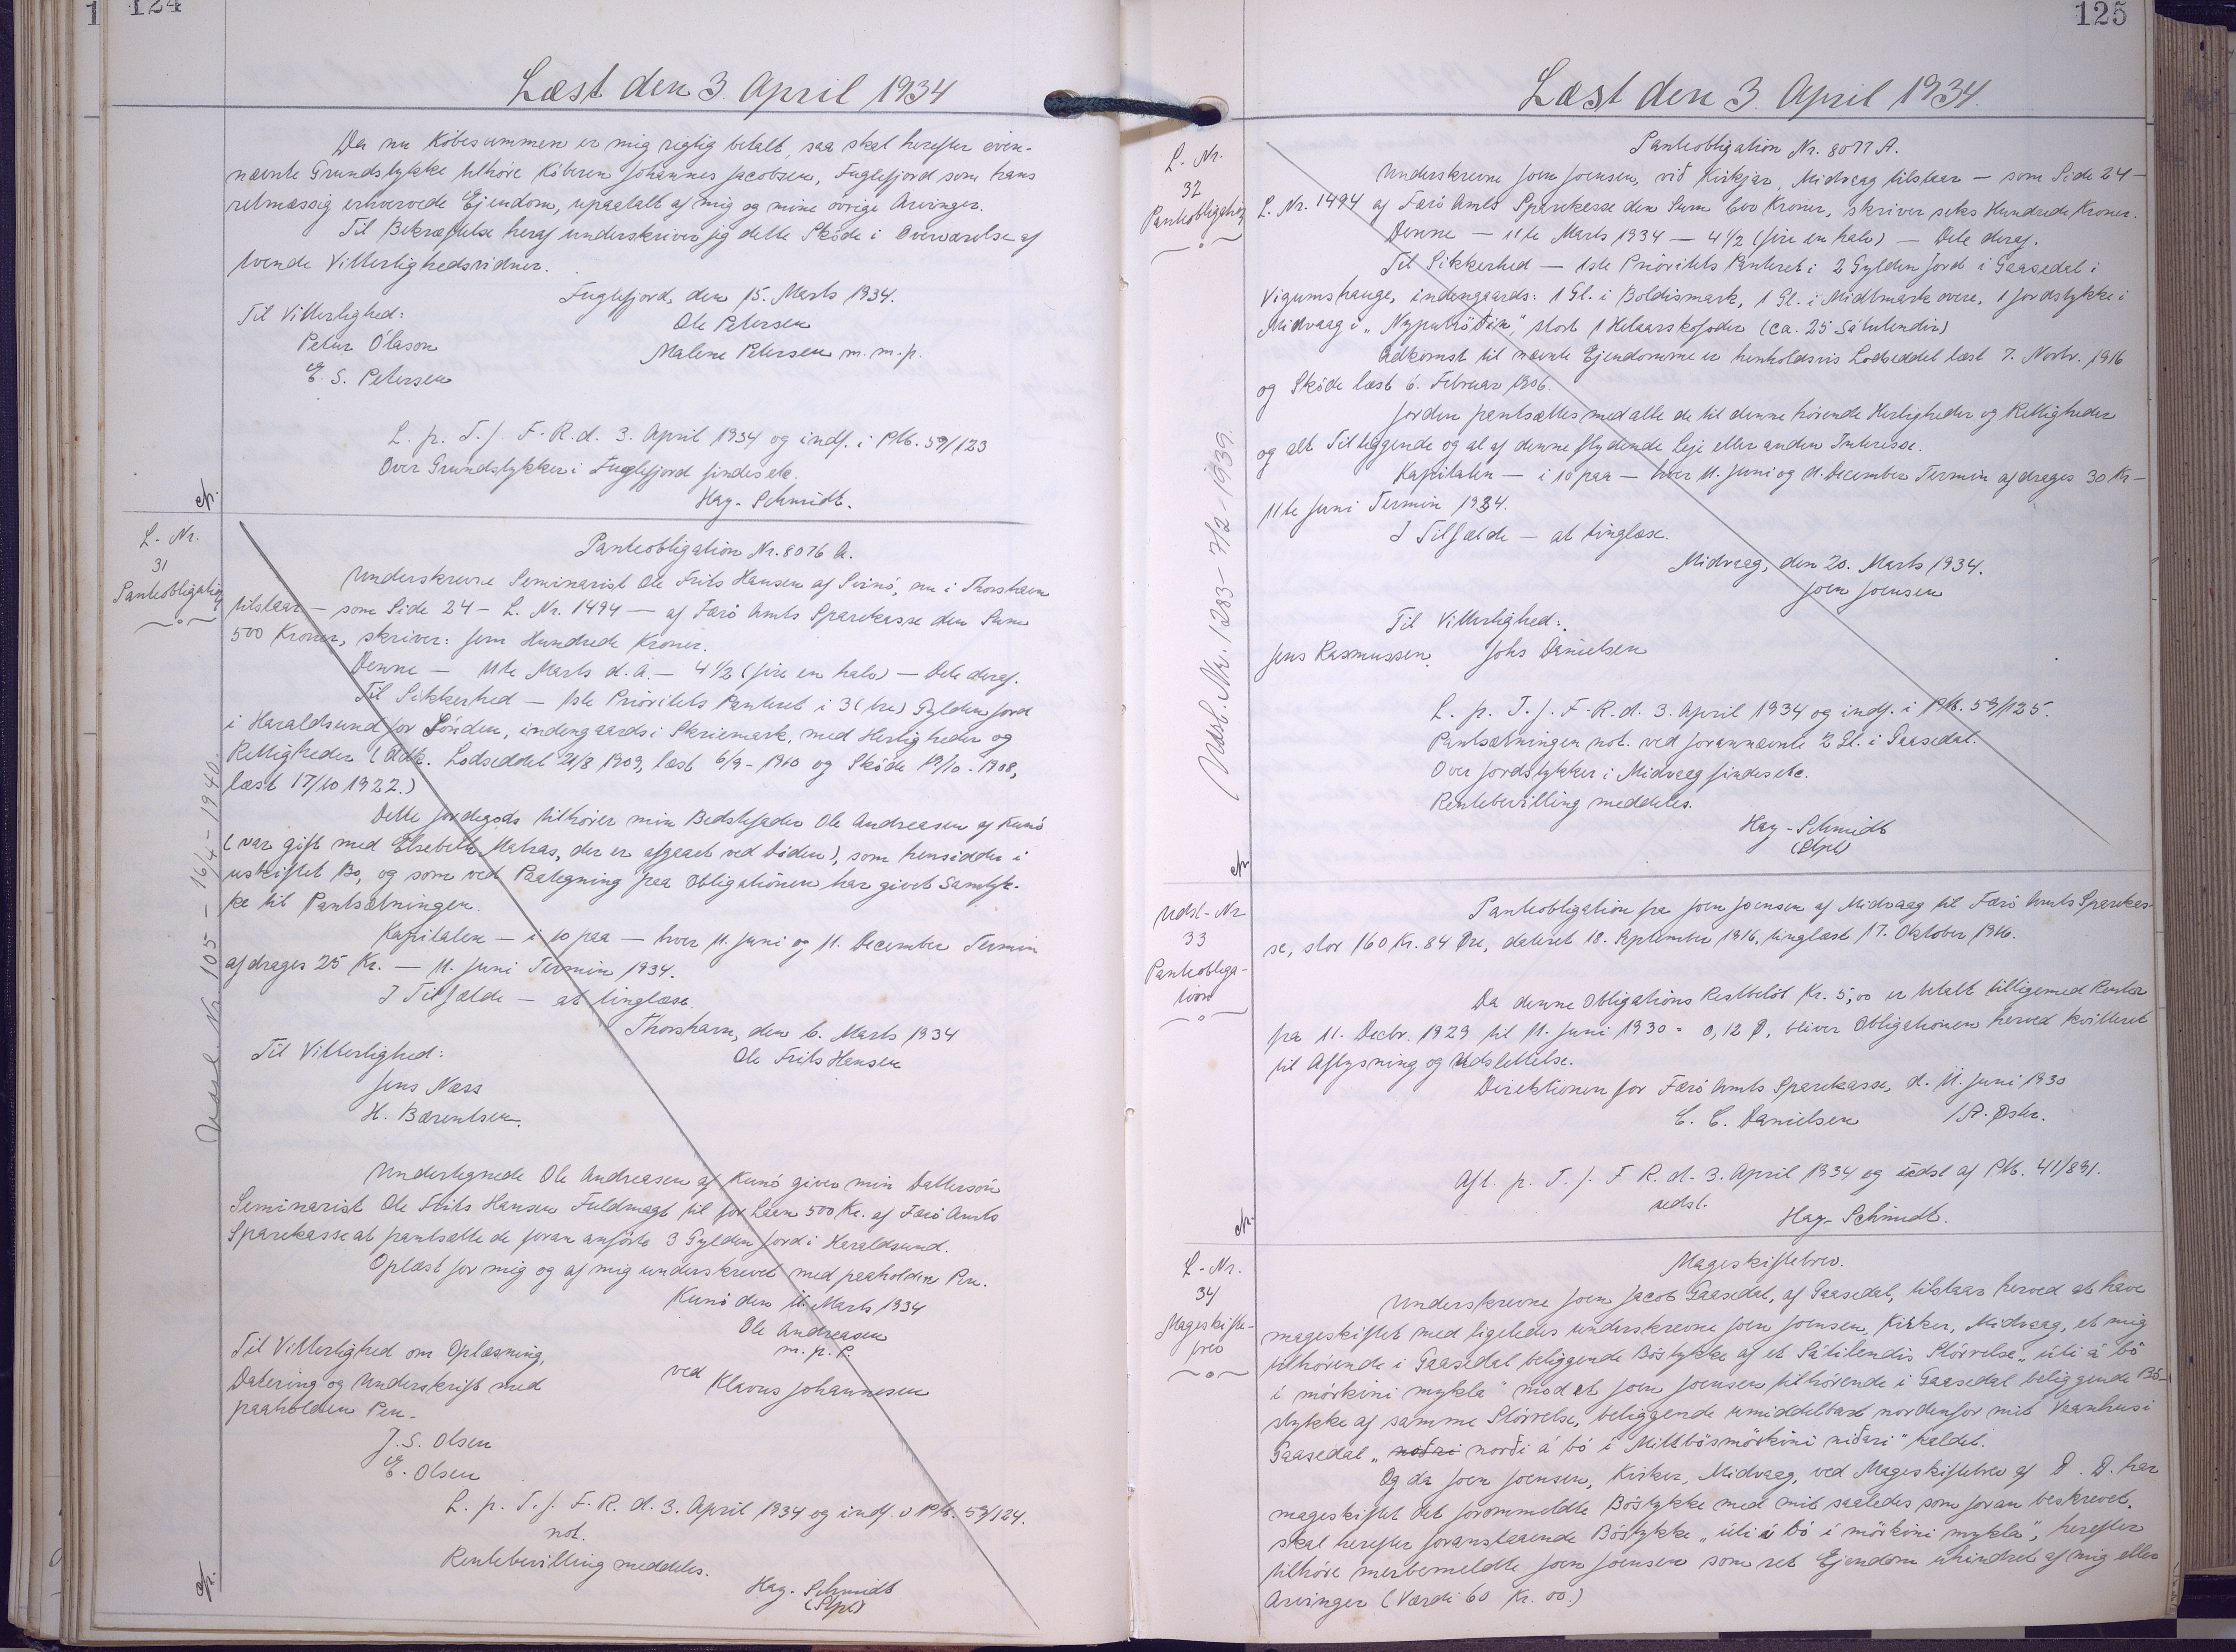 124
Læst den 3. April 1934
Da nu Købesummen er mig rigtig betalt, saa skal herefter oven-
nævnte Grundstykke tilhøre Køberen Johannes Jacobsen, Fuglefjord som hans
retmæssig erhvervede Ejendom, upaatalt af mig og mine øvrige Arvinger.
Til Bekræftelse heraf underskriver jeg dette Skøde i Overværelse af
tvende Vitterlighedsvidner.
Fuglefjord, den 15. Marts 1934.
Til Vitterlighed:
Ole Petersen
Petur Ólason
Malene Petersen m.m.p.
E. S. Petersen
L. p. T. f. F. R. d. 3. April 1934 og indf. i Ptb. 59/123
Over Grundstykker i Fuglefjord findes etc.
Hay-Schmidt.
L-Nr.
31
Panteobligation
Panteobligation Nr. 8076 A.
Underskrevne Seminarist Ole Frits Hansen af Svinø, nu i Thorshavn
tilstaar — som Side 24 — L. Nr. 1494 — af Færø Amts Sparekasse den Sum
500 Kroner, skriver: fem Hundrede Kroner.
Denne — 11te Marts d. A. — 4 1/2 (fire en halv) — Dele deraf.
Til Sikkerhed — 1ste Prioritets Panteret i 3 (tre) Gylden Jord
i Haraldsund for Sønden, indengaards i Skriemark, med Herligheder og
Rettigheder (Adk. Lodseddel 21/8 1909, læst 6/9-1910 og Skøde 19/10-1908,
læst 17/10 1922.)
Dette Jordegods tilhører min Bedstefader Ole Andreasen af Kunø
(var gift med Elsebeth Matras, der er afgaaet ved Døden), som hensidder i
uskiftet Bo, og som ved Paategning paa Obligationen har givet Samtyk-
ke til Pantsætningen.
Kapitalen — i 10 paa — hver 11. Juni og 11. December Termin
afdrages 25 Kr. — 11. Juni Termin 1934.
I Tilfælde — at tinglæse.
Thorshavn, den 6. Marts 1934
Til Vitterlighed:
Ole Frits Hansen
Jens Næss
H. Bærentsen.
Udsl. Nr. 105 - 16/4 - 1940.
Undertegnede Ole Andreasen af Kunø giver min Dattersøn
Seminarist Ole Frits Hansen Fuldmagt til for Laan 500 Kr. af Færø Amts
Sparekasse at pantsætte de foran anførte 3 Gylden Jord i Haraldsund.
Oplæst for mig og af mig underskrevet med paaholden Pen.
Kunø den 11. Marts 1934
Ole Andreasen
m. p. P.
ved Klavus Johannesen
Til Vitterlighed om Oplæsning,
Datering og Underskrift med
paaholden Pen.
J. S. Olsen
E. Olsen
L. p. T. f. F. R. d. 3. April 1934 og indf. i Ptb. 59/124.
not.
Rentebevilling meddeles.
Hay-Schmidt
(Stpl)
125
Læst den 3. April 1934.
L-Nr.
32
Panteobligation
Panteobligation Nr. 8077 A.
Underskrevne Joen Joensen, við Kirkjar, Midvaag tilstaar — som Side 24 —
L. Nr. 1494 af Færø Amts Sparekasse den Sum 600 Kroner, skriver seks Hundrede Kroner.
Denne — 11te Marts 1934 — 4 1/2 (fire en halv) — Dele deraf.
Til Sikkerhed — 1ste Prioritets Panteret i 2 Gylden Jord i Gaasedal i
Vigumshauge, indengaards: 1 Gl. i Boldismark, 1 Gl. i Midtmark øvere, 1 Jordstykke i
Midvaag i „Nyputrøðin", stort 1 Helaarskofoder (ca. 25 Sátulendir)
Adkomst til nævnte Ejendomme er henholdsvis Lodseddel læst 7. Novbr. 1916
og Skøde læst 6. Februar 1906.
Jorden pantsættes med alle de til denne hørende Herligheder og Rettigheder
og alt Tilliggende og al af denne flydende Leje eller anden Interesse.
Kapitalen — i 10 paa — hver 11. Juni og 11. December Termin afdrages 30 Kr —
11te Juni Termin 1934.
I Tilfælde — at tinglæse.
Midvaag, den 20. Marts 1934.
Joen Joensen
Til Vitterlighed:
Jens Rasmussen. Johs Danielsen
Udsl. Nr. 1283 - 7/2 - 1939.
L. p. T. f. F. R. d. 3. April 1934 og indf. i Ptb. 59/125.
Pantsætningen not. ved forannævnte 2 Gl. i Gaasedal.
Over Jordstykker i Midvaag findes etc.
Rentebevilling meddeles.
Hay-Schmidt
(Stpl)
Udsl-Nr
33
Panteobliga-
tion
Panteobligation fra Joen Joensen af Midvaag til Færø Amts Sparekas-
se, stor 160 Kr. 84 Øre, dateret 18. September 1916, tinglæst 17. Oktober 1916.
Da denne Obligations Restbeløb Kr. 5,00 er betalt tilligemed Renter
fra 11. Decbr. 1929 til 11. Juni 1930 = 0,12 Ø, bliver Obligationen herved kvitteret
til Aflysning og Udslettelse.
Direktionen for Færø Amts Sparekasse, d. 11. Juni 1930
C. C. Danielsen
Afl. p. T. f. F R. d. 3. April 1934 og udsl af Ptb. 41/891.
udsl.
Hay-Schmidt.
L-Nr.
34
Mageskifte-
brev
Mageskiftebrev.
Underskrevne Joen Jacob Gaasedal, af Gaasedal, tilstaar herved at have
mageskiftet med ligeledes underskrevne Joen Joensen, Kirker, Midvaag, et mig
tilhørende i Gaasedal beliggende Bøstykke af et Sátilendis Størrelse „úti á bø
i mørkini mykla" mod et Joen Joensen tilhørende i Gaasedal beliggende Bø-
stykke af samme Størrelse, beliggende umiddelbart nordenfor mit Vaanhus i
Gaasedal „noðri norði á bø i Mittbøsmørkini niðari" kaldet.
Og da Joen Joensen, Kirker, Midvaag, ved Mageskiftebrev af D. D. har
mageskiftet det forommeldte Bøstykke med mit saaledes som foran beskrevet,
skal herefter foranstaaende Bøstykke „úti á bø i mørkini mykla", herefter
tilhøre merbemeldte Joen Joensen som ret Ejendom uhindret af mig eller
Arvinger (Værdi 60 Kr. 00.)